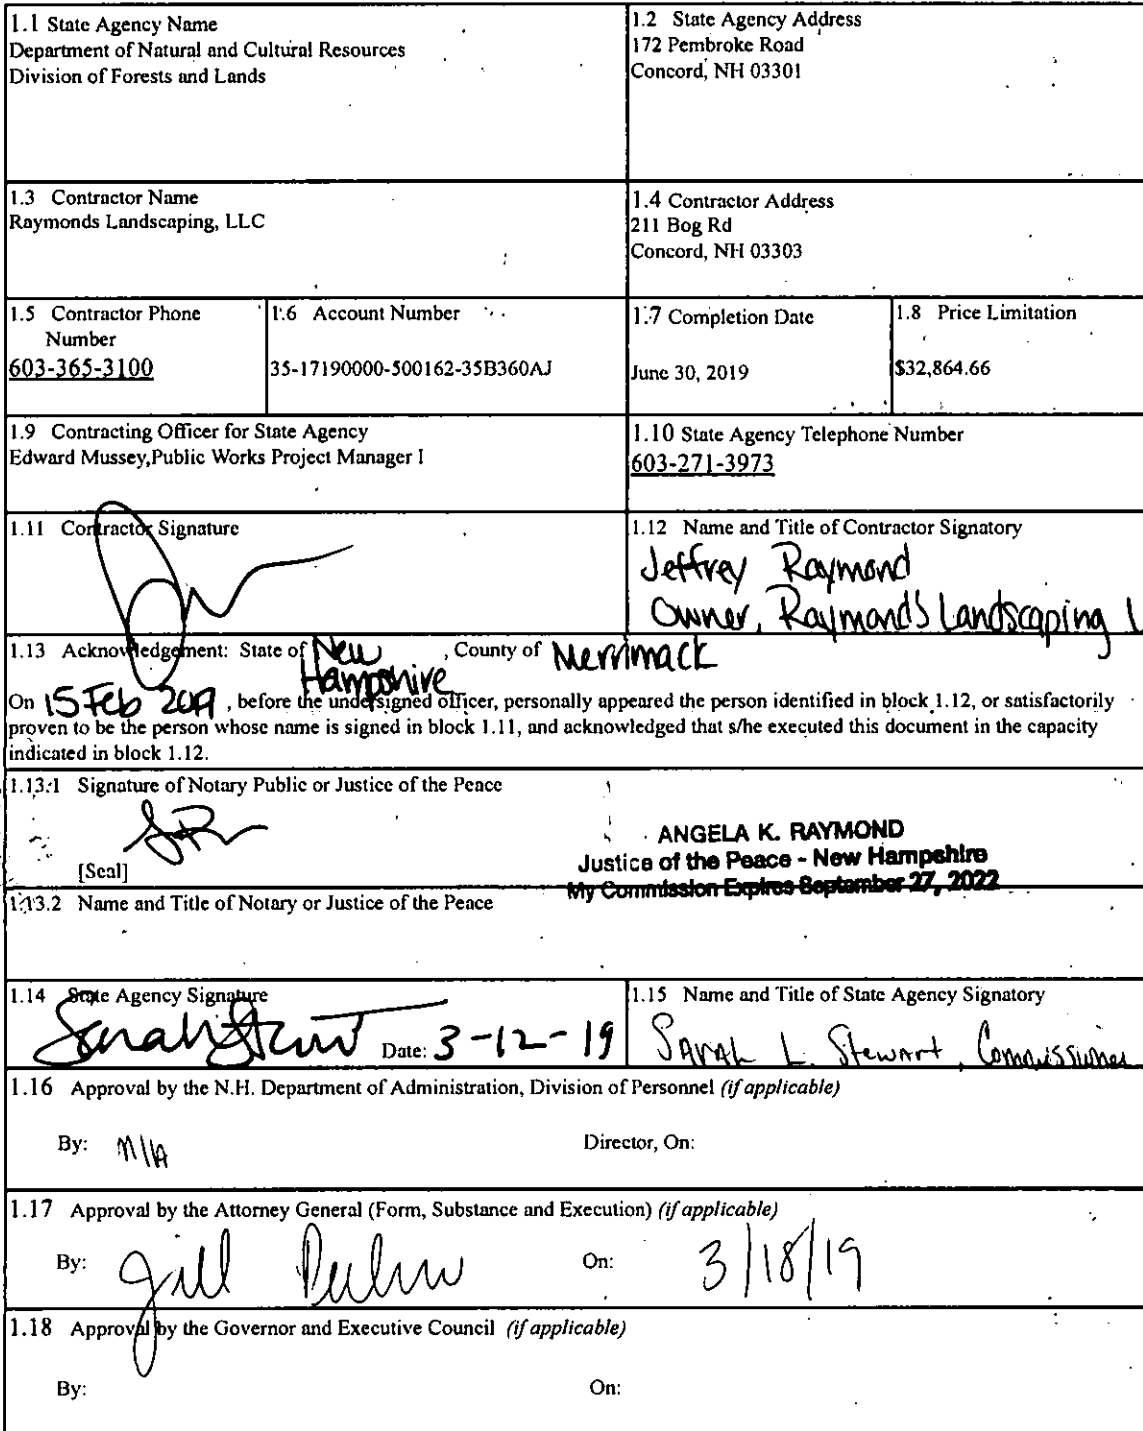 1.1 State Agency Name
Department of Natural and Cultural Resources
Division of Forests and Lands
1.2 State Agency Address
172 Pembroke Road
Concord, NH 03301
1.3 Contractor Name
Raymonds Landscaping, LLC
1.4 Contractor Address
211 Bog Rd
Concord, NH 03303
1.5 Contractor Phone
Number
603-365-3100
1.6 Account Number
35-17190000-500162-35B360AJ
1.7 Completion Date
June 30, 2019
1.8 Price Limitation
$32,864.66
1.9 Contracting Officer for State Agency
Edward Mussey,Public Works Project Manager I
1.10 State Agency Telephone Number
603-271-3973
1.11 Contractor Signature
1.12 Name and Title of Contractor Signatory
Jeffrey Raymond
Owner, Raymond's Landscaping L
1.13 Acknowledgement: State of New Hampshire, County of Merrimack
On 15 Feb 2019, before the undersigned officer, personally appeared the person identified in block 1.12, or satisfactorily
proven to be the person whose name is signed in block 1.11, and acknowledged that s/he executed this document in the capacity
indicated in block 1.12.
1.13.1 Signature of Notary Public or Justice of the Peace
[Seal]
ANGELA K. RAYMOND
Justice of the Peace - New Hampshire
My Commission Expires September 27, 2022
1.13.2 Name and Title of Notary or Justice of the Peace
1.14 State Agency Signature
Sarah Stewart Date: 3-12-19
1.15 Name and Title of State Agency Signatory
Sarah L. Stewart, Commissioner
1.16 Approval by the N.H. Department of Administration, Division of Personnel (if applicable)
By: N/A Director, On:
1.17 Approval by the Attorney General (Form, Substance and Execution) (if applicable)
By: Jill On: 3/18/19
1.18 Approval by the Governor and Executive Council (if applicable)
By: On: